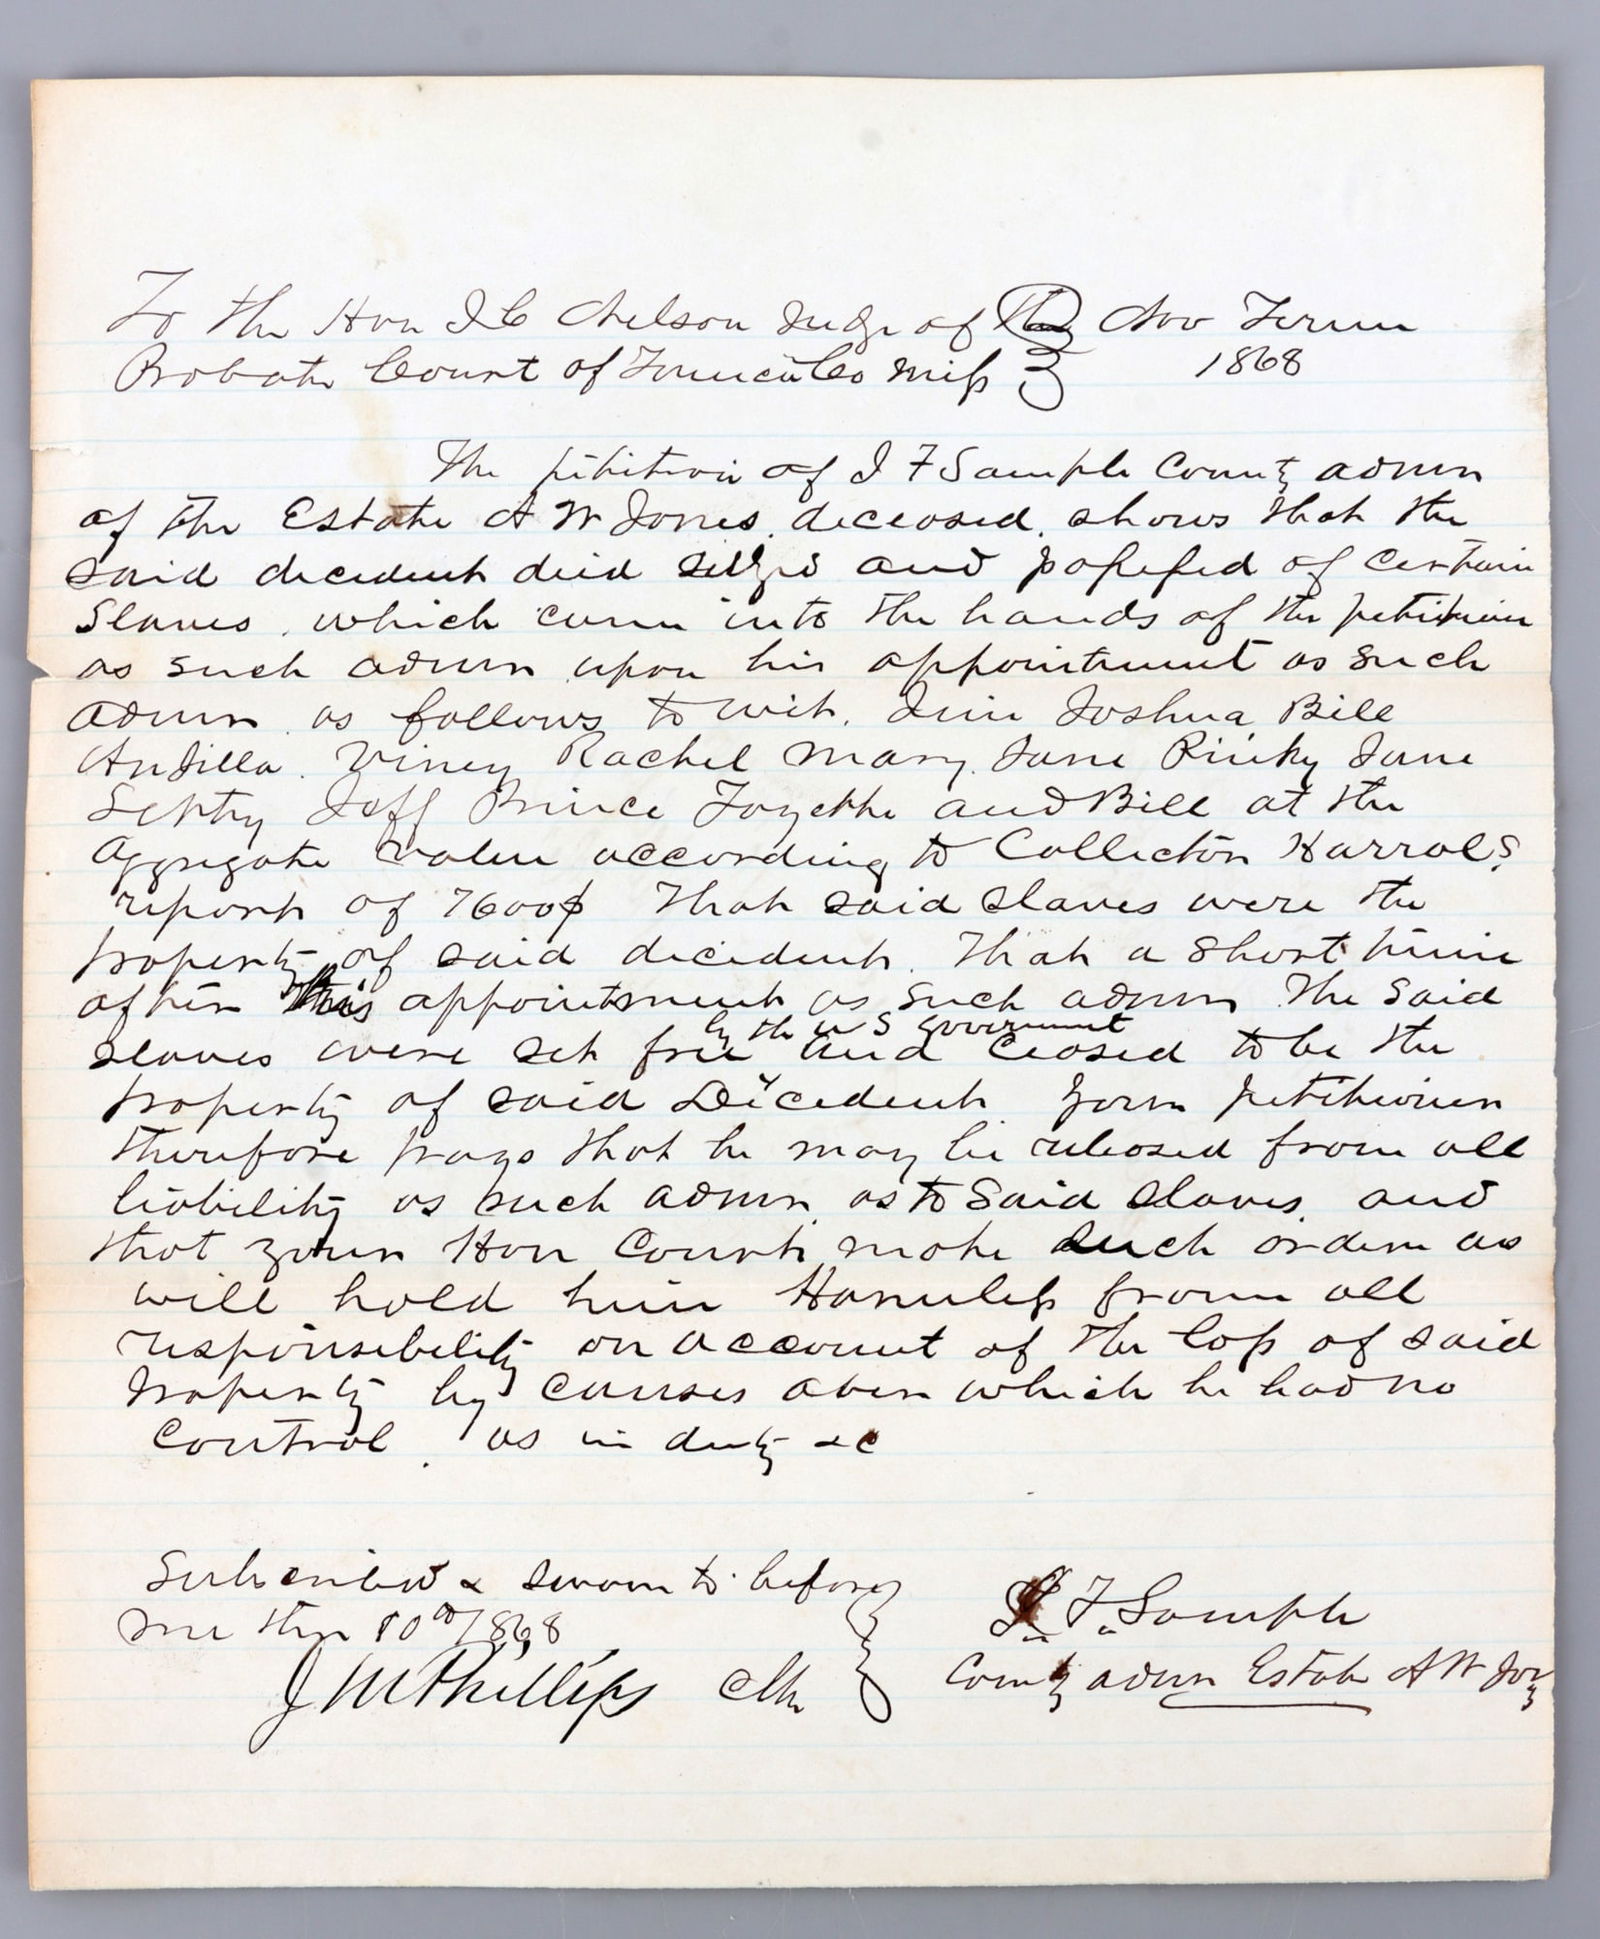 To the Hon J C Nelson Judge of the Nov Term
Probate Court of Tunica Co Miss 1868
The petition of J F Sample County admr
of the Estate A W Jones deceased. shows that the
said decedent died seized and possessed of certain
Slaves. which came into the hands of the petitioner
as such admr upon his appointment as such
admr as follows to wit. Jim Joshua Bill
Ardilla. Viney Rachel Mary. Jane Pinky Jane
Jeff Prince Fayette and Bill at the
aggregate value according to Collector Harrals
report of 7600$ That said slaves were the
property of said decedent. That a short time
after his appointment as such admr The said
by the U S Government
slaves were set free and ceased to be the
property of said Decedent Your petitioner
therefore prays that he may be released from all
liability as such admr as to said slaves. and
that your Hon Court make such order as
will hold him Harmless from all
responsibility on account of the loss of said
property by causes over which he had no
control. as in duty &c
Subscribed & sworn to before
me this 10th /868
J M Phillips Clk
J. F. Sample
County admr Estate A W Jones